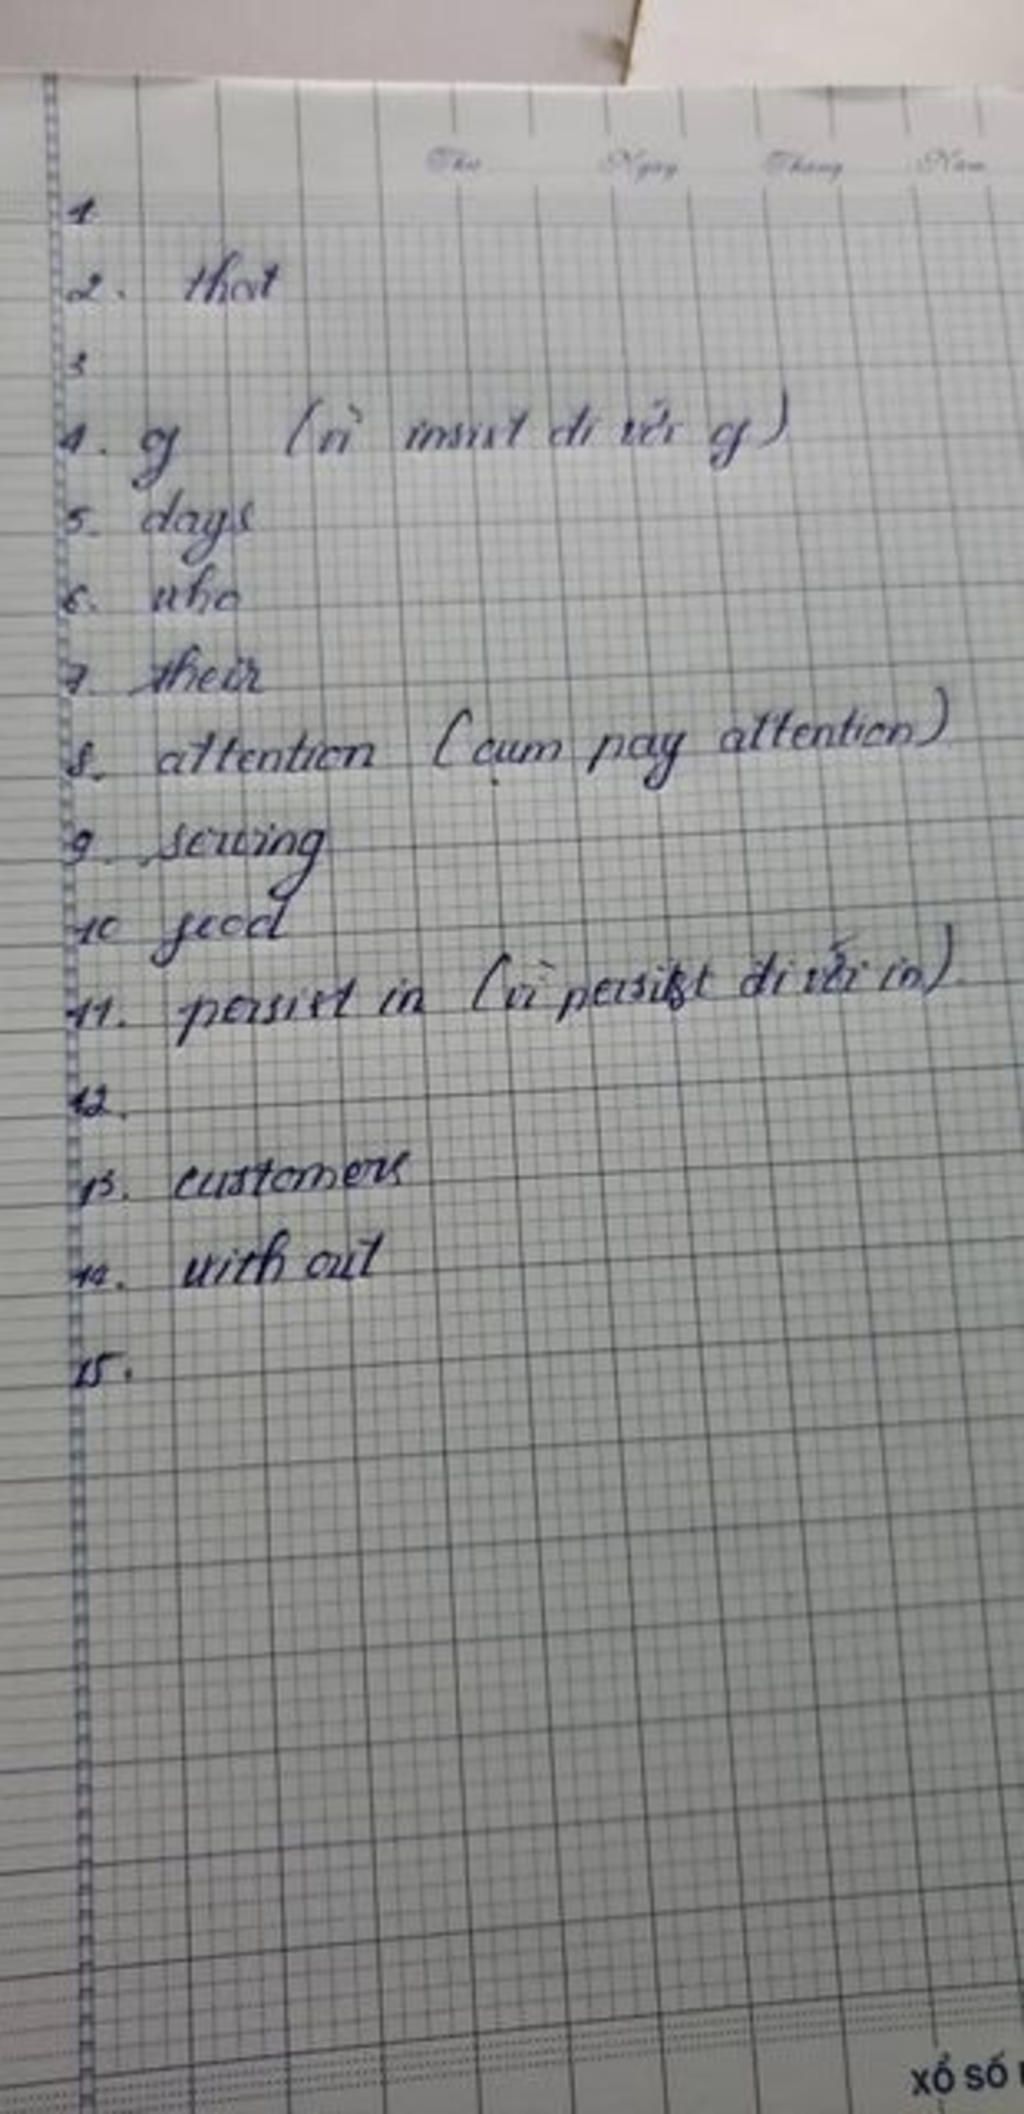 Thứ Ngày Tháng Năm
1
2. that
3
4. of (vì insist đi với of)
5. days
6. who
7. their
8. attention (cụm pay attention)
9. serving
10 good
11. persist in (vì persist đi với in)
12.
13. customers
14. with out
15.
XỔ SỐ